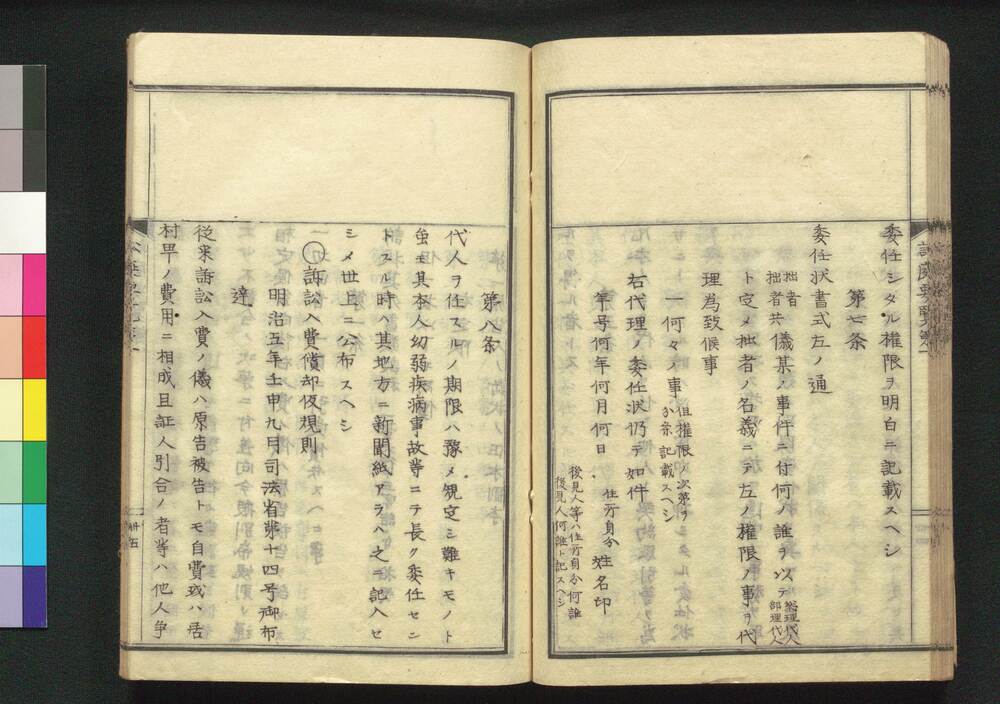 委任シタル權限ヲ明白ニ記載スヘシ
第七条
委任状書式左ノ通
拙者
拙者共
儀某ノ事件ニ付何ノ誰ヲ以テ
総理代人
部理代人
ト定メ拙者ノ名義ニテ左ノ權限ノ事ヲ代
理為致候事
一何々ノ事
但權限ノ次第ヲ
分条記載スヘシ
右代理ノ委任状仍テ如件
年号何年何月何日
住所身分
姓名印
後見人等ハ住所身分何誰
後見人何誰ト記スヘシ
第八条
代人ヲ任スルノ期限ハ豫メ規定シ難キモノト
虽モ其本人幼弱疾病事故等ニテ長ク委任セン
トスル時ハ其地方ニ新聞紙アラハ之ニ記入セ
シメ世上ニ公布スヘシ
○訴訟入費償却仮規則
明治五年壬申九月司法省第十四号御布
達
従来訴訟入費ノ儀ハ原告被告トモ自費或ハ居
村畢ノ費用ニ相成且証人引合ノ者等ハ他人ノ争
卌五